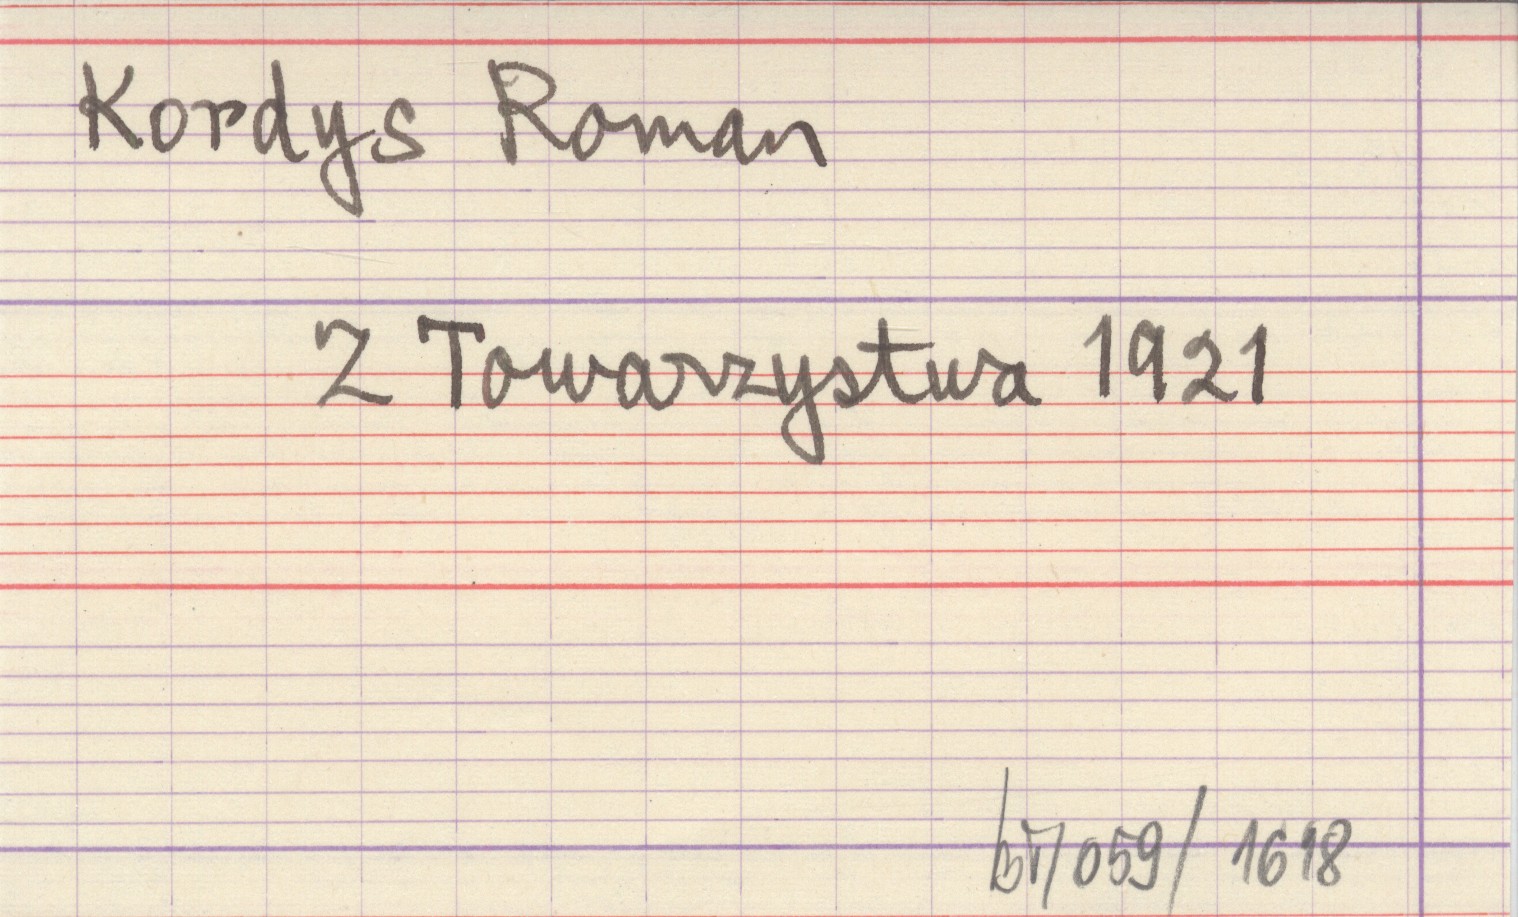 Kordys Roman
Z Towarzystwa 1921
br/059/ 1618